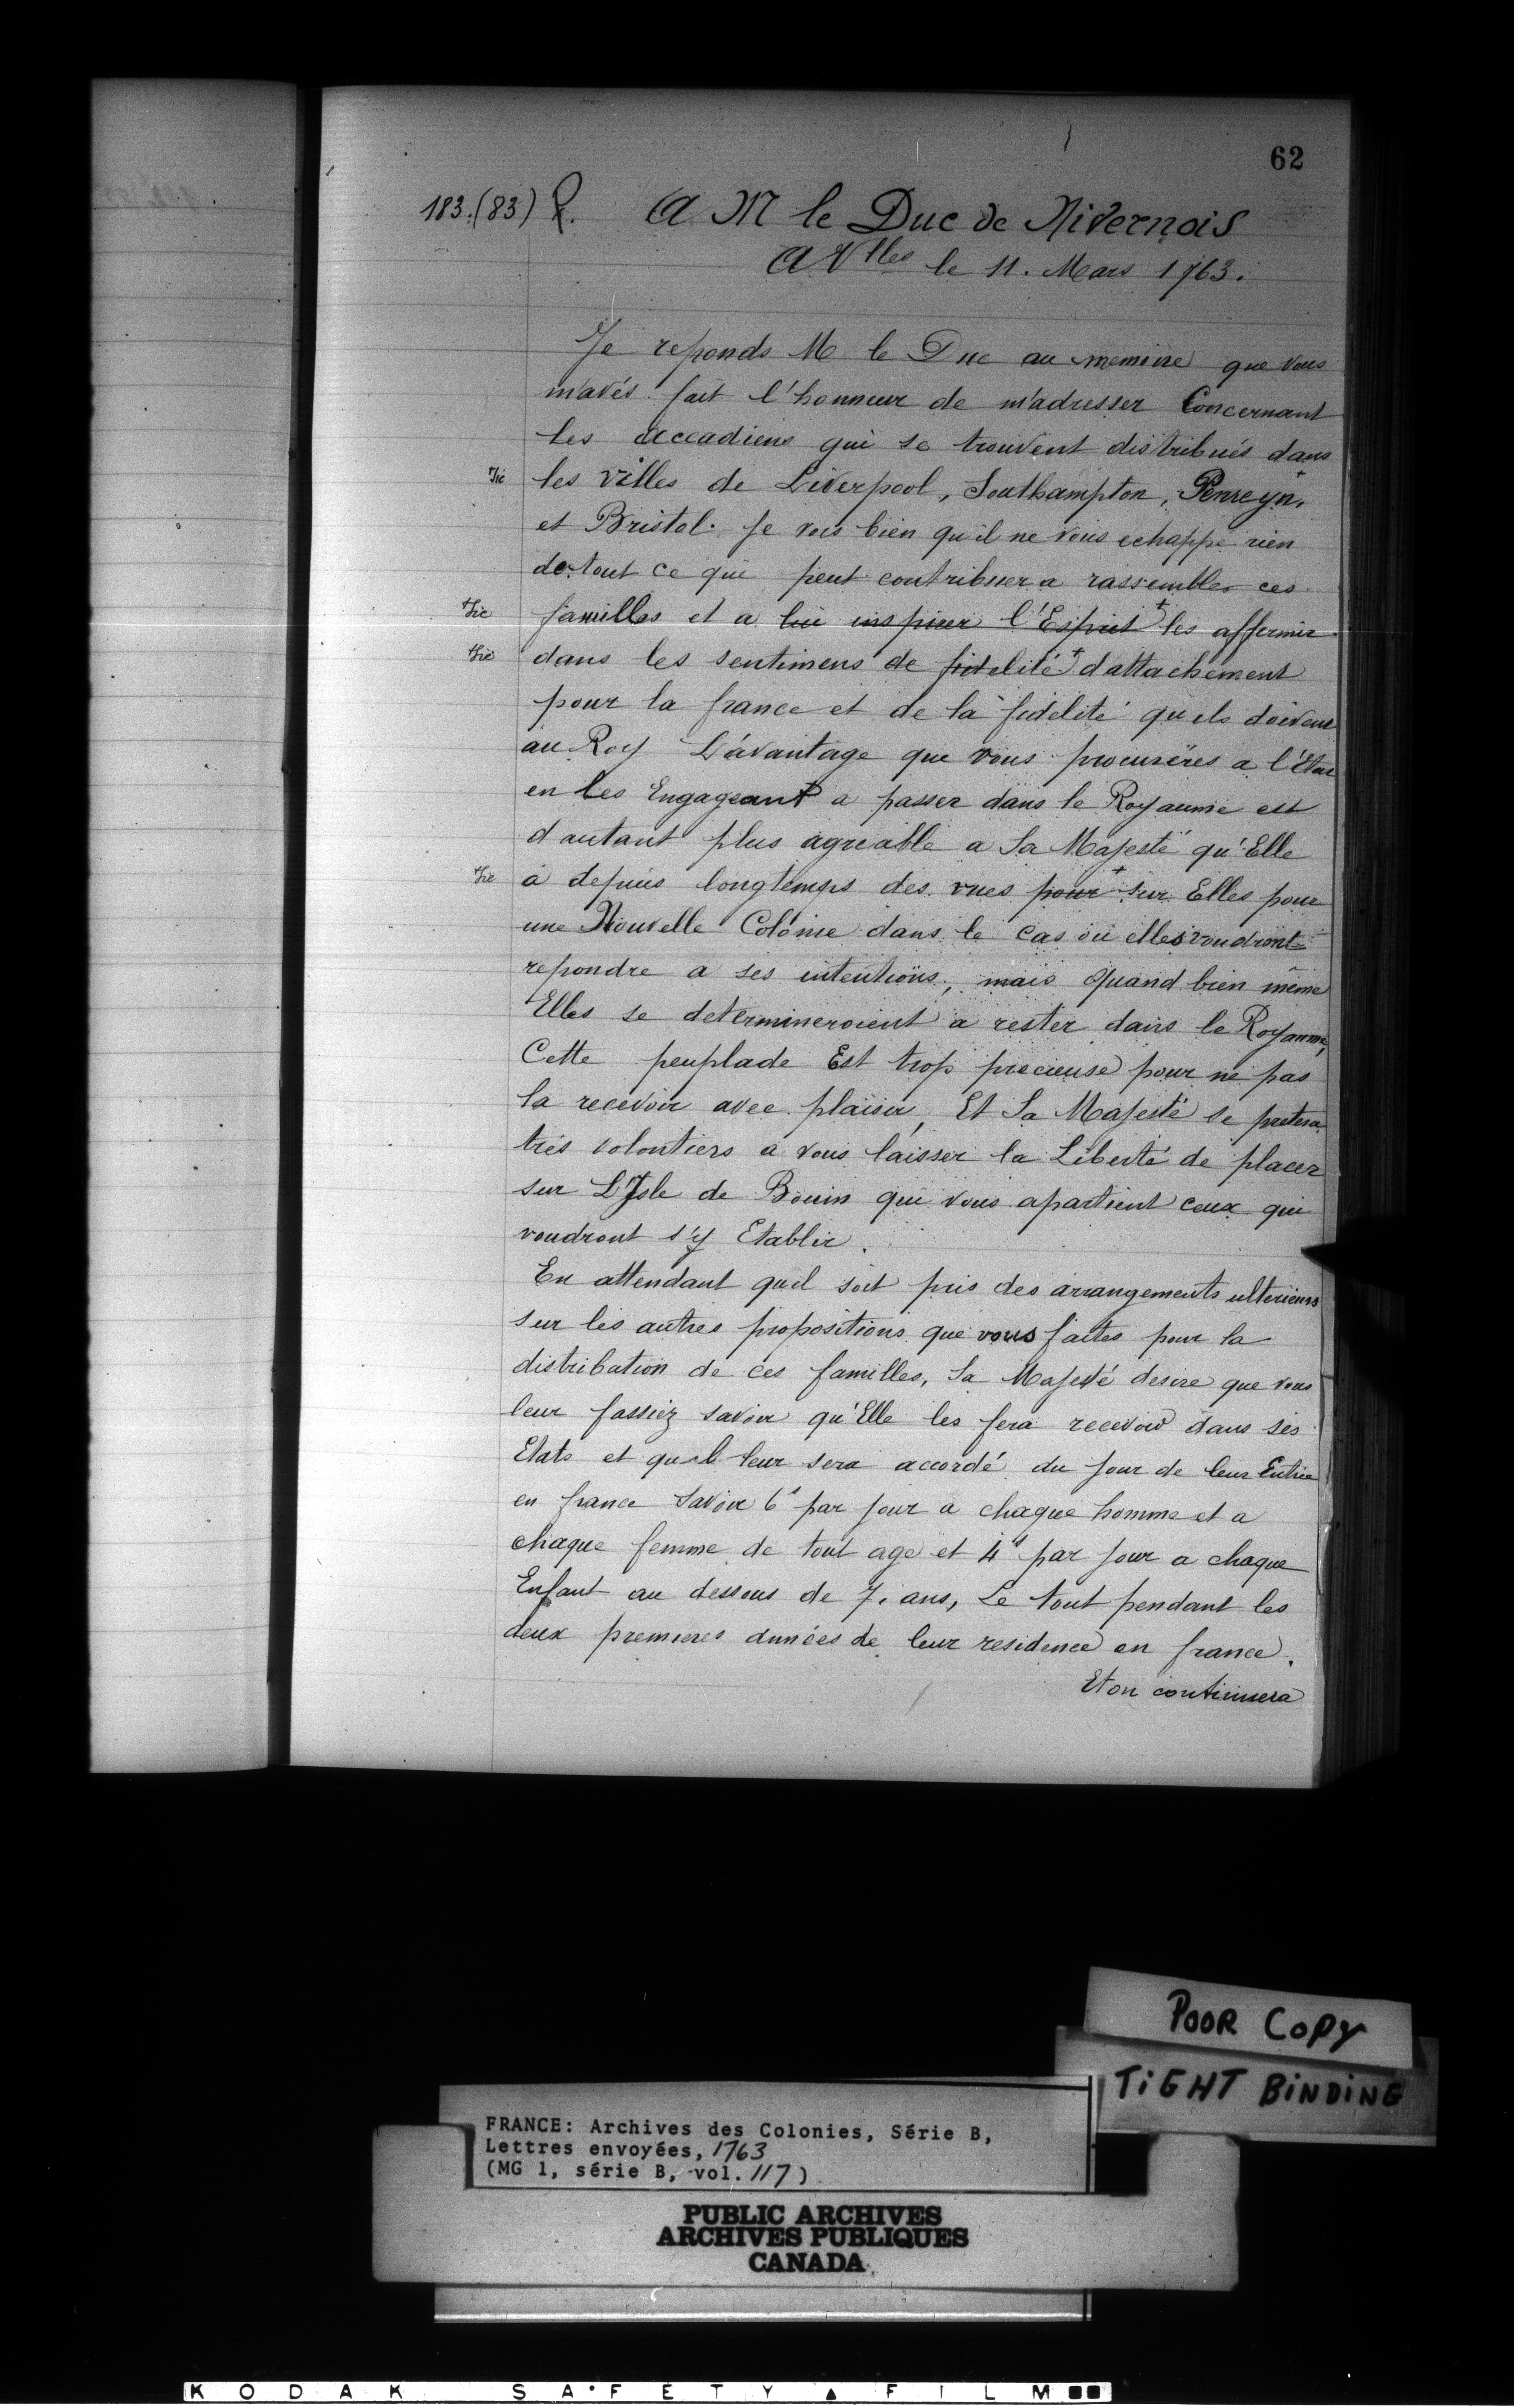 62
183. (83) A M le Duc de Nivernois
A Vlles le 11. Mars 1763.
Je reponds M le Duc au memoire que vous
m'avés fait l'honneur de m'adresser Concernant
les accadiens qui se trouvent distribués dans
Sic les villes de Liverpool, Southampton, Penreyn,
et Bristol. Je vois bien qu'il ne vous echappe rien
de tout ce qui peut contribuer a rassembler ces
Sic familles et a lui inspirer l'Esprit + les affermir
Sic dans les sentimens de fidelité + d'attachement
pour la france et de la fidelité qu'ils doivent
au Roy L'avantage que vous procurères a l'Etat
en les Engageant a passer dans le Royaume est
d'autant plus agreable a Sa Majesté qu'Elle
Sic a depuis longtemps des vues pour + sur Elles pour
une Nouvelle Colonie dans le cas où elles voudront
repondre a ses intentions, mais quand bien même
Elles se determineroient a rester dans le Royaume,
Cette peuplade Est trop precieuse pour ne pas
la recevoir avec plaisir, Et Sa Majesté se pretera
trés volontiers a vous laisser la Liberté de placer
sur L'Isle de Bouin qui vous apartient ceux qui
voudront s'y Etablir.
En attendant qu'il soit pris des arrangements ulterieurs
sur les autres propositions que vous faites pour la
distribation de ces familles, Sa Majesté desire que vous
leur fassiez savoir qu'Elle les fera recevoir dans ses
Etats et qu'il leur sera accordé du jour de leur Entrée
en france Savoir 6s par jour a chaque homme et a
chaque femme de tout age et 4s par jour a chaque
Enfant au dessous de 7. ans, Le tout pendant les
deux premieres années de leur residence en france.
Et on continuera
POOR COPY
TIGHT BINDING
FRANCE: Archives des Colonies, Série B,
Lettres envoyées, 1763
(MG 1, série B, vol. 117)
PUBLIC ARCHIVES
ARCHIVES PUBLIQUES
CANADA
KODAK SAFETY FILM